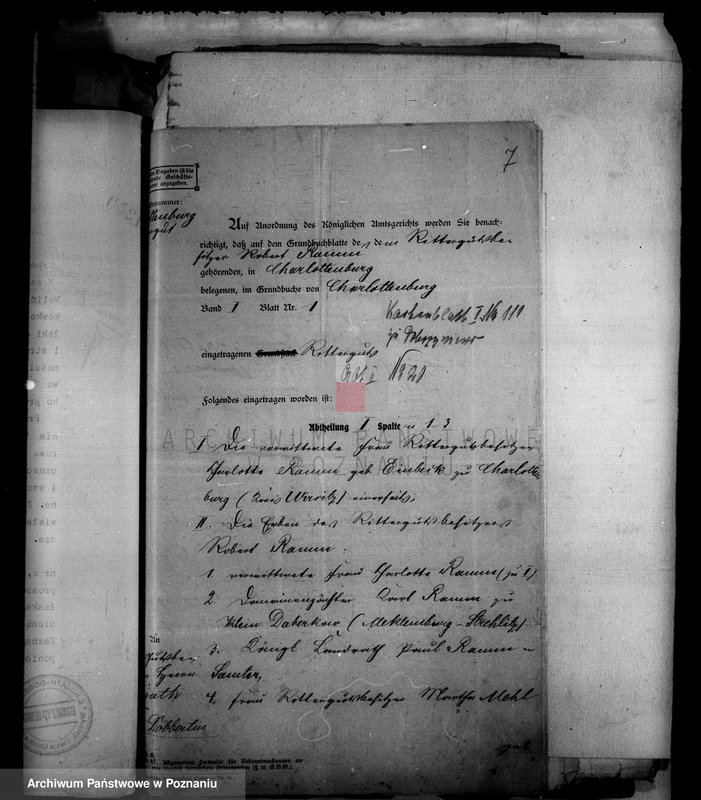 7
Eingaben ist die
Geschäfts-
anzugeben.
nummer:
ttenburg
gut
Auf Anordnung des Königlichen Amtsgerichts werden Sie benach-
richtigt, daß auf dem Grundbuchblatte de s dem Rittergutsbe
sitzer Robert Ramm
gehörenden, in Charlottenburg
belegenen, im Grundbuche von Charlottenburg
Band 1 Blatt Nr. 1
Kartenblatt I No 111
zu
eingetragenen Grundstück Ritterguts
Abt. II No 21
Folgendes eingetragen worden ist:
Abtheilung I Spalte n 1-3
ARCHIWUM PAŃSTWOWE
W POZNANIU
I Die verwittwete Frau Rittergutsbesitzer
Charlotte Ramm geb. Einbeck zu Charlotten
burg (Kreis Wirsitz) einerseits,
II. Die Erben des Rittergutsbesitzers
Robert Ramm:
1. verwittwete Frau Charlotte Ramm (zu I)
2. Domainenpächter Karl Ramm zu
Klein Daberkow (Meklenburg-Strehlitz)
3. Königl Landrath Paul Ramm in
Samter,
4, Frau Rittergutsbesitzer Martha Mehl
geb
An
Herrn
Dobbertin
47. Allgemeines Formular für Bekanntmachungen an
Archiwum Państwowe w Poznaniu